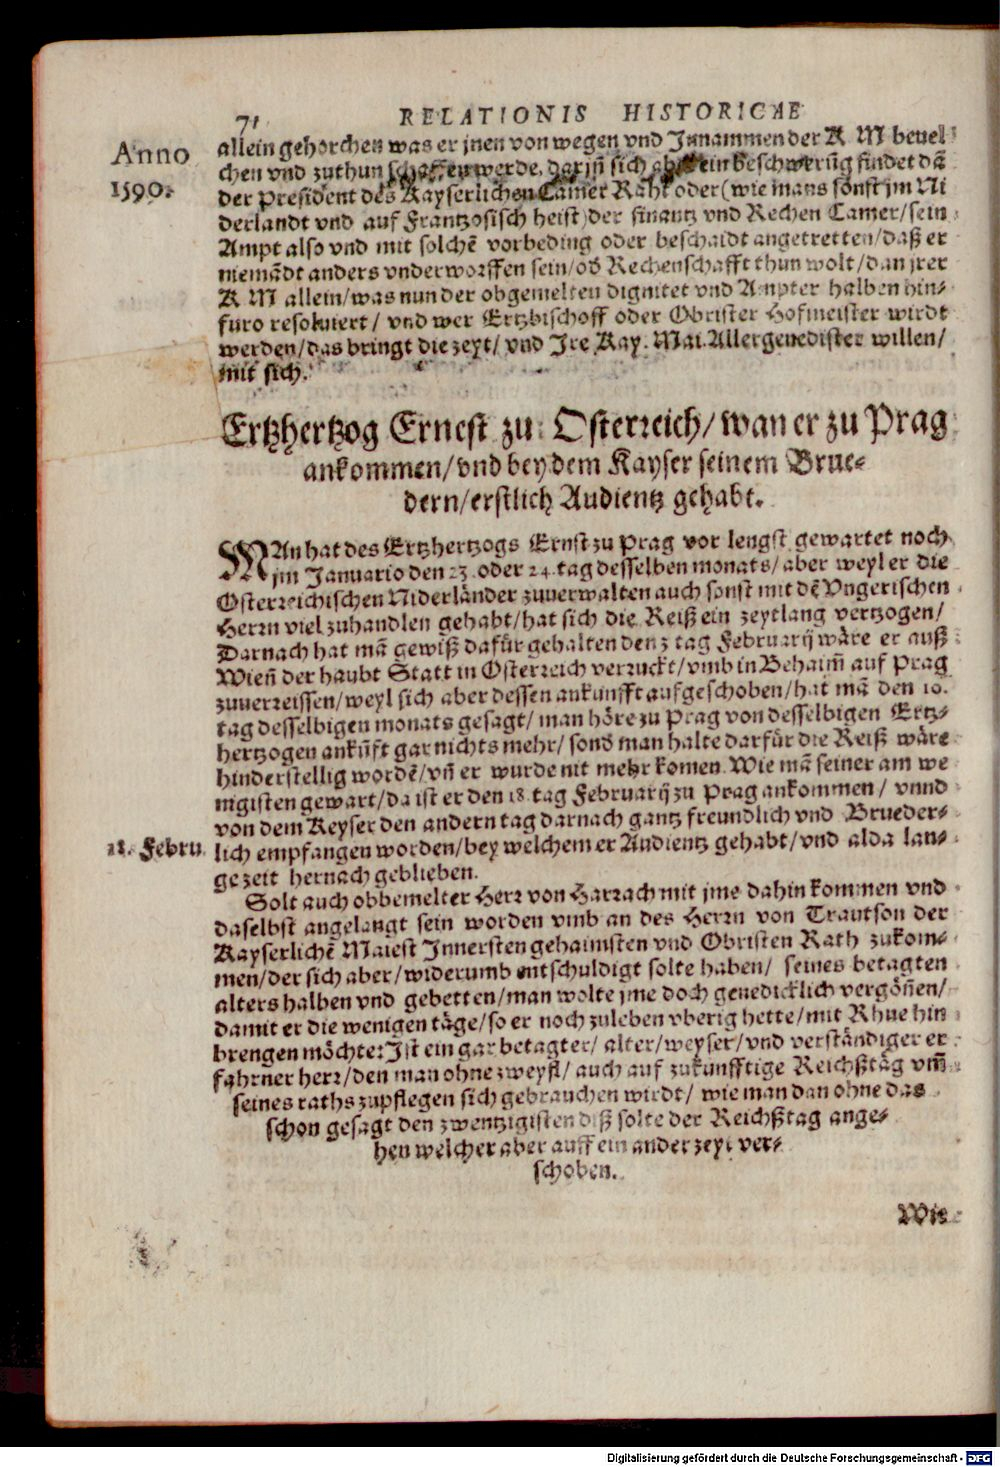 71 RELATIONIS HISTORICAE
Anno
1590.
allein gehorchen was er jnen von wegen vnd Jnnammen der K M beuel
chen vnd zuthun schaffen werde, darjn̄ sich aber ein beschwerūg findet dā
der President des Kayserlichen Camer Raht oder (wie mans sonst jm Ni
derlandt vnd auf Frantzosisch heist) der finantz vnd Rechen Camer / sein
Ampt also vnd mit solchē vorbeding oder beschaidt angetretten / daß er
niemādt anders vnderworffen sein / od Rechenschafft thun wolt / dan jrer
K M allein / was nun der obgemelten dignitet vnd Ampter halben hin⸗
furo resoluiert / vnd wer Ertzbischoff oder Obrister Hofmeister wirdt
werden / das bringt die zeyt / vnd Jre Kay. Mai. Allergenedister willen /
mit sich.
Ertzhertzog Ernest zu Osterreich / wan er zu Prag
ankommen / vnd bey dem Kayser seinem Brue⸗
dern / erstlich Audientz gehabt.
MAn hat des Ertzhertzogs Ernst zu Prag vor lengst gewartet noch
jm Januario den 23. oder 24. tag desselben monats / aber weyl er die
Osterreichischen Niderländer zuuerwalten auch sonst mit dē Vngerischen
Herrn viel zuhandlen gehabt / hat sich die Reiß ein zeytlang vertzogen /
Darnach hat mā gewiß dafür gehalten den 3 tag Februarij wäre er auß
Wien̄ der haubt Statt in Osterreich verruckt / vmb in Behaim̄ auf Prag
zuuerreissen / weyl sich aber dessen ankunfft aufgeschoben / hat mā den 10.
tag desselbigen monats gesagt / man höre zu Prag von desselbigen Ertz⸗
hertzogen ankūft gar nichts mehr / sond man halte darfür die Reiß wäre
hinderstellig wordē / vn̄ er wurde nit mehr komen. Wie mā seiner am we
nigisten gewart / da ist er den 18. tag Februarij zu Prag ankommen / vnnd
von dem Keyser den andern tag darnach gantz freundlich vnd Brueder⸗
18. Febru.
lich empfangen worden / bey welchem er Audientz gehabt / vnd alda lan⸗
ge zeit hernach geblieben.
Solt auch obbemelter Herr von Harrach mit jme dahin kommen vnd
daselbst angelangt sein worden vmb an des Herrn von Trautson der
Kayserlichē Maiest Jnnersten gehaimsten vnd Obristen Rath zukom⸗
men / der sich aber / widerumb entschuldigt solte haben / seines betagten
alters halben vnd gebetten / man wolte jme doch genedicklich vergön̄en /
damit er die wenigen täge / so er noch zuleben vberig hette / mit Rhue hin
brengen möchte: Jst ein gar betagter / alter / weyser / vnd verständiger er
fahrner herr / den man ohne zweyfl / auch auf zukunfftige Reichßtäg vm̄
seines raths zupflegen sich gebrauchen wirdt / wie man dan ohne das
schon gesagt den zwentzigisten diß solte der Reichßtag ange⸗
hen welcher aber auff ein ander zeyt ver⸗
schoben.
Wie
Digitalisierung gefördert durch die Deutsche Forschungsgemeinschaft - DFG